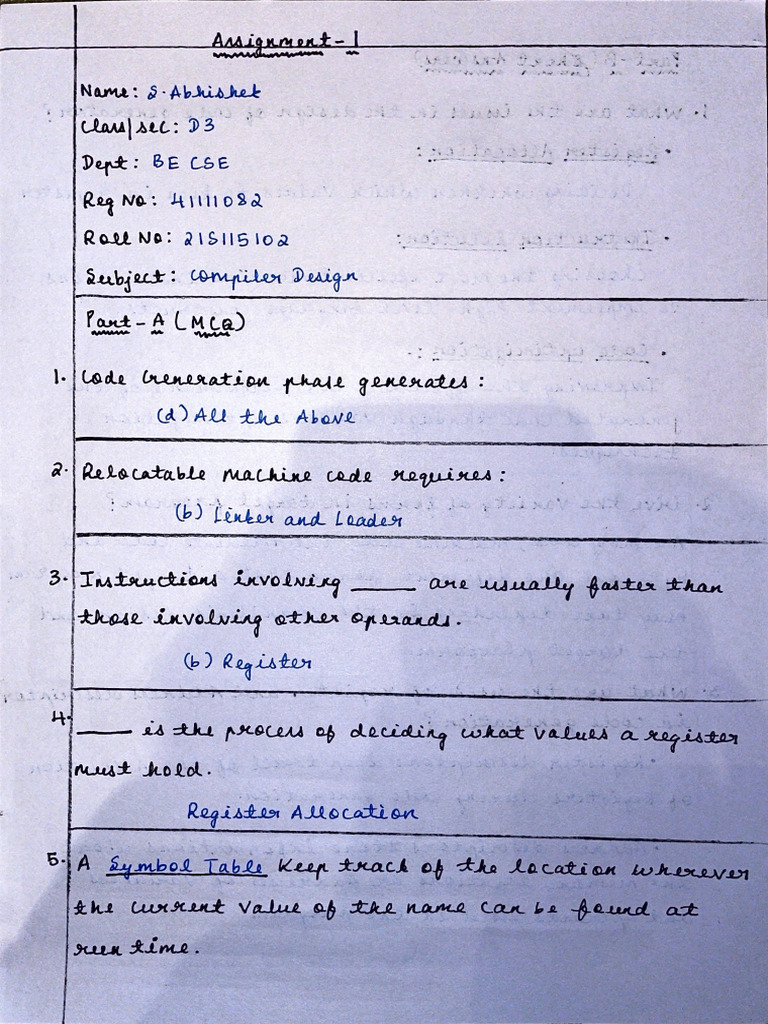 Assignment - 1
Name: S. Abhishek
Class/sec: D3
Dept: BE CSE
Reg No: 41111082
Roll No: 21S115102
Subject: Compiler Design
Part - A (MCQ)
1. Code Generation phase generates:
(d) All the Above
2. Relocatable machine code requires:
(b) Linker and Loader
3. Instructions involving _____ are usually faster than
those involving other operands.
(b) Register
4. _____ is the process of deciding what values a register
must hold.
Register Allocation
5. A Symbol Table Keep track of the location wherever
the current value of the name can be found at
run time.